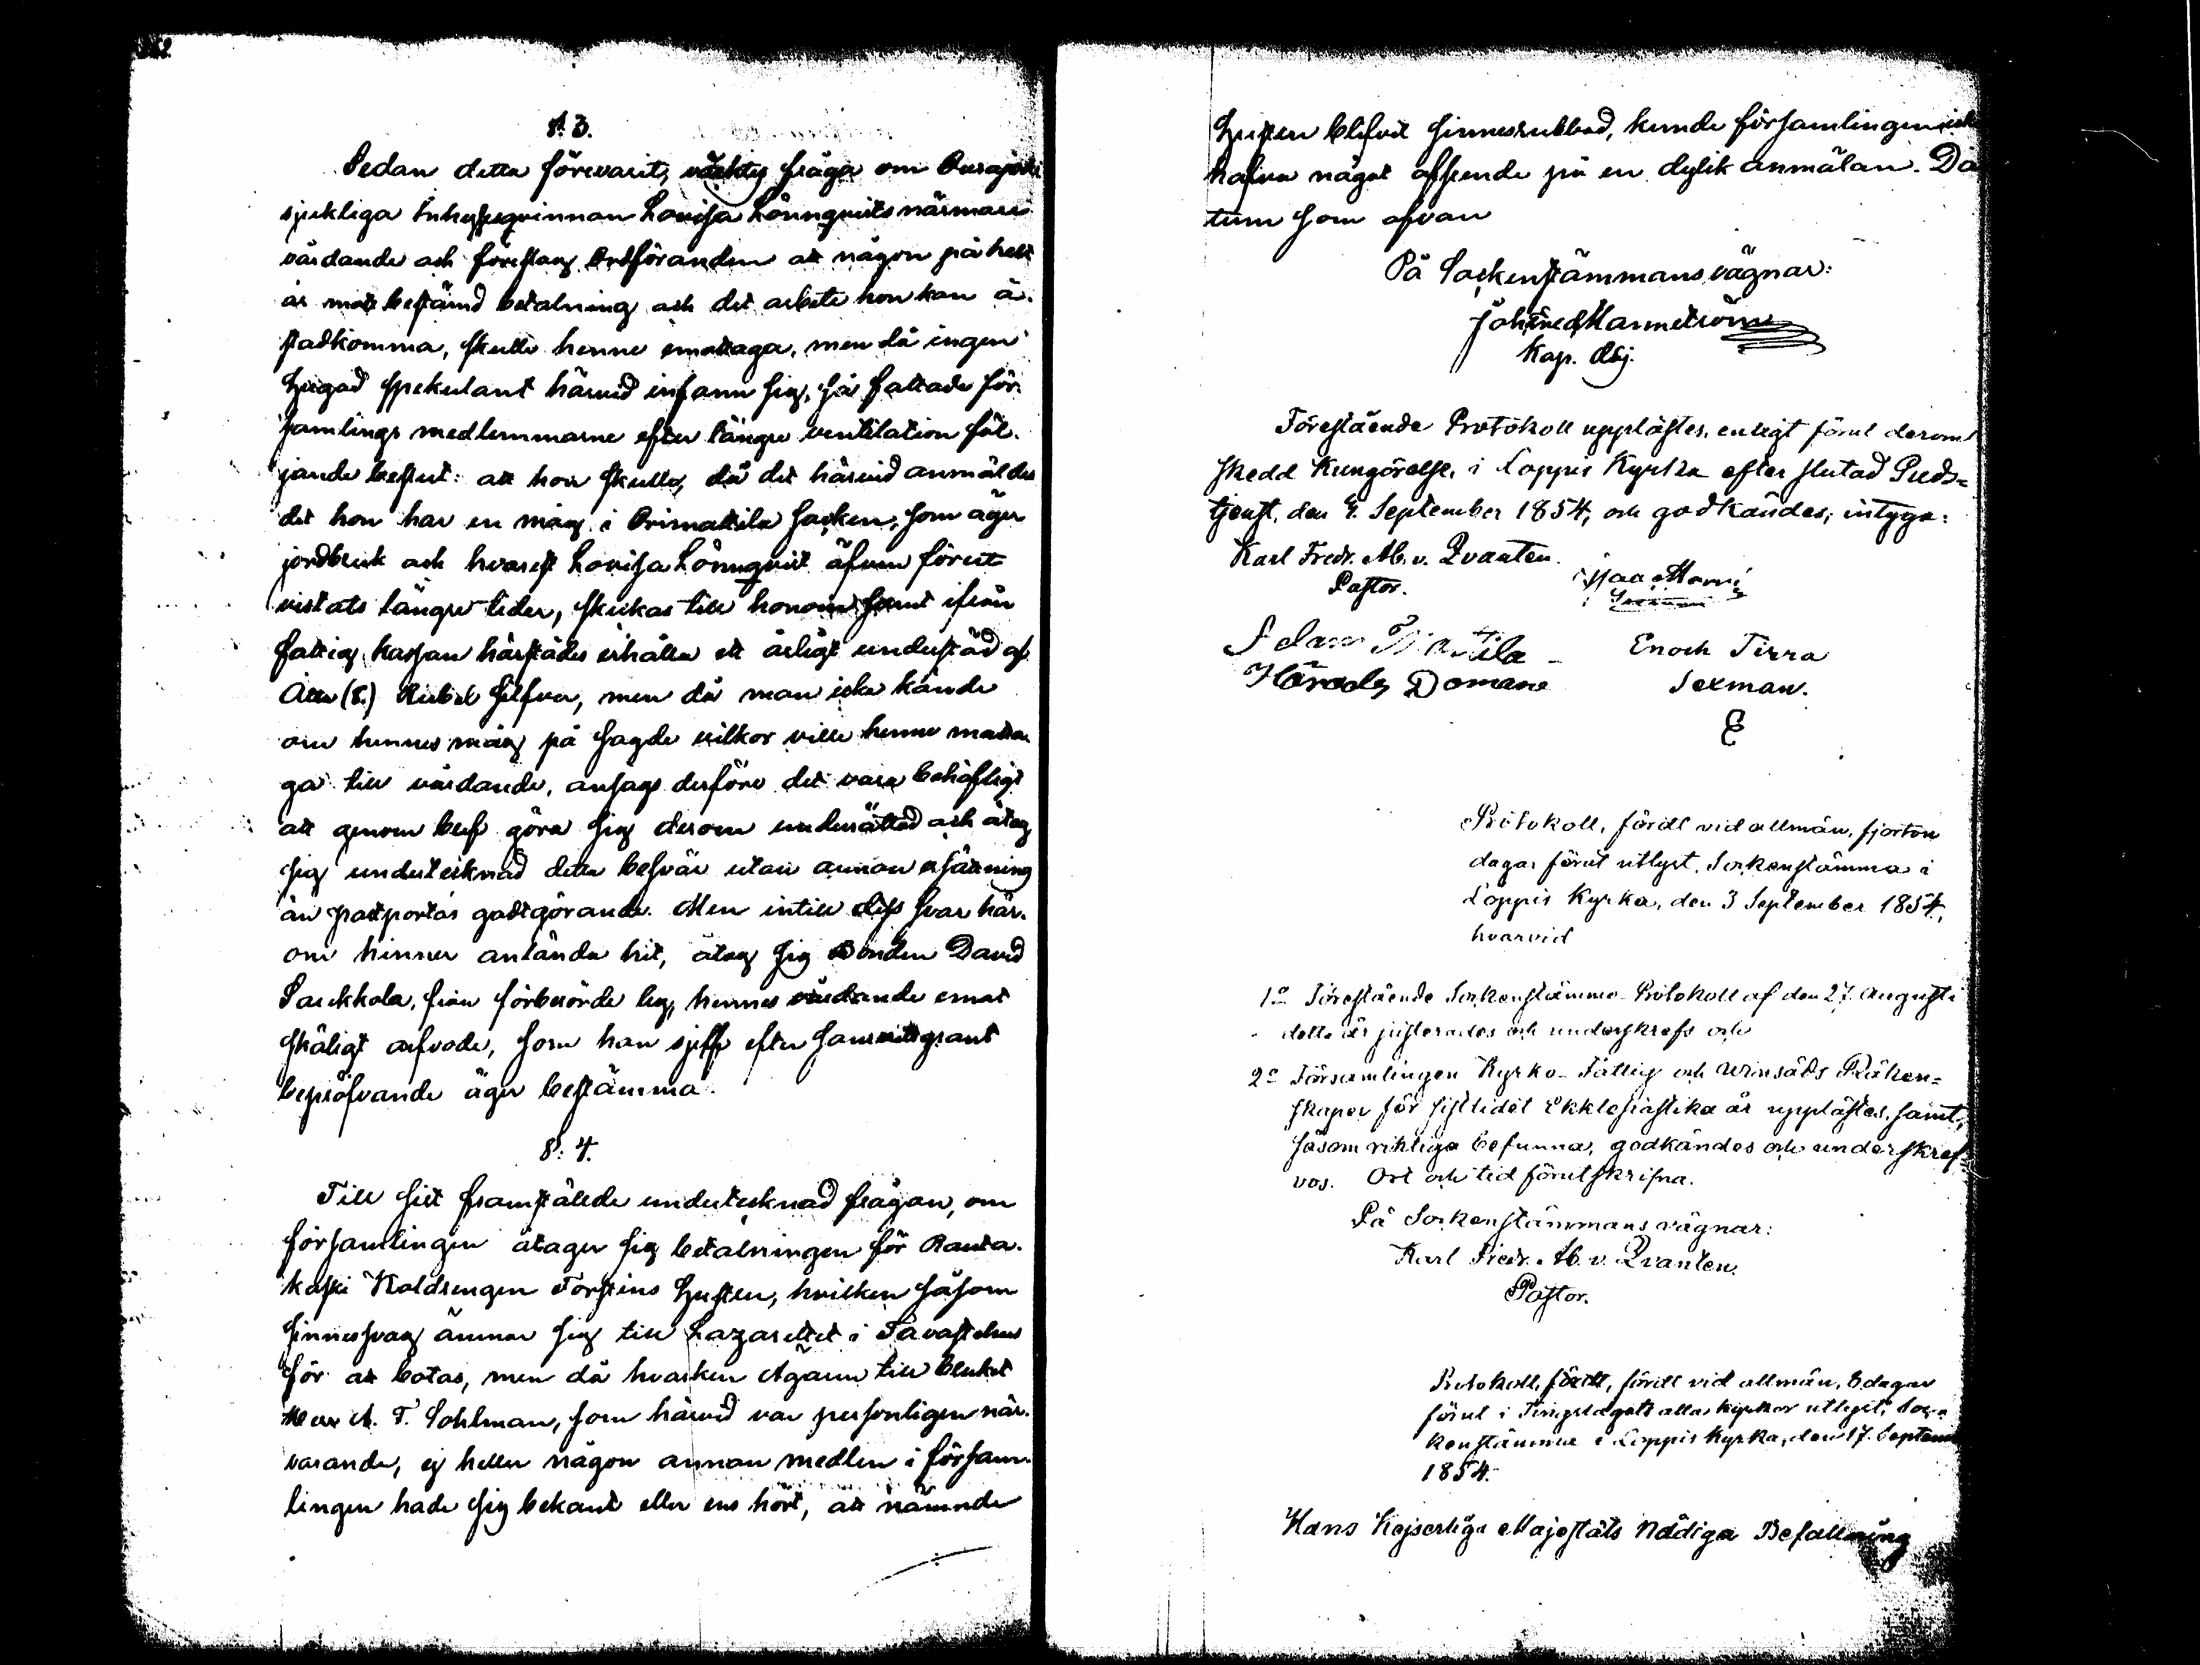 §. 3.
Sedan detta förevarit, väcktes fråga om Ourajoki
sjukliga Inhysesqvinnan Lovisa Lönnqvists närmare
vårdande och föreslog Ordföranden att någon på helt
år mot bestämd betalning och det arbete hon kan å-
stadkomma, skulle henne emottaga, men då ingen
hugad spekulant härvid infann sig, så fattade för-
samlings medlemmarne efter längre ventilation föl-
jande beslut: att hon skulle, då det härvid anmäldes
det hon har en måg i Orimattila Socken, som äger
jordbruk och hvarest Lovisa Lönnqvist äfven förut
vistats längre tider, skickas till honom samt ifrån
fattig kassan härstädes erhålla ett årligt understöd af
Åtta (8.) Rubel Silfver, men då man icke kände
om hennes måg på sagde vilkor ville henne motta-
ga till vårdande, ansågs derföre det vara behöfligt
att genom bref göra sig derom underrättad och åtog
sig undertecknad detta besvär utan annan ersättning
än postportos godtgörande. Men intill dess svar här-
om hinner anlända hit, åtog sig Bonden David
Saukkola, från förberörde by, hennes vårdande emot
skäligt arfvode, som han sjelf efter samvetsgrant
bepröfvande äger bestämma.
§. 4.
Till sist framställde undertecknad frågan, om
församlingen åtager sig betalningen för Ranta-
kaski Koldrengen Torstins hustru, hvilken såsom
sinnessvag ämnar sig till Lazarettet i Tavastehus
för att botas, men då hvarken Ägaren till bruket
Herr A. F. Sohlman, som härvid var personligen när-
varande, ej heller någon annan medlem i försam-
lingen hade sig bekant eller ens hört, att nämnde
hustru blifvit sinnesrubbad, kunde församlingen ick
hafva något afseende på en dylik anmälan. Da
tum som ofvan
På Sockenstämmans vägnar:
Joh. Fred. Marmetröm
Kap. Adj.
Förestående Protokoll upplästes, enligt förut derom
skedd Kungörelse, i Loppis Kyrka efter slutad Guds-
tjenst, den 4. September 1854, och godkändes; intyga:
Karl Fredr. Ab. v. Qvanten.
Pastor.
Isaac Marri
Sexman
Adam Mattila
Härads Domare
Enoch Tirra
Sexman.
E
Protokoll, fördt vid allmän, fjorton
dagar förut utlyst, Sockenstämma i
Loppis Kyrka, den 3 September 1854,
hvarvid
1o Förestående Sockenstämmo-Protokoll af den 27. Augusti
detta år justerades och underskrefs och
2o Församlingen Kyrko-Fattig och Winsäds Räken-
skaper för sistlidet Ekklesiastika år upplästes, samt,
såsom riktiga befunna, godkändes och underskref-
vos. Ort och tid förutskrifna.
På Sockenstämmans vägnar:
Karl Fredr. Ab. v. Qvanten.
Pastor.
Protokoll, fördt, fördt vid allmän, 8 dagar
förut i Tingslagets alla kyrkor utlyst, Soc-
kenstämma i Loppis Kyrka, den 17. Septem
1854.
Hans Kejserliga Majestäts Nådiga Befallning